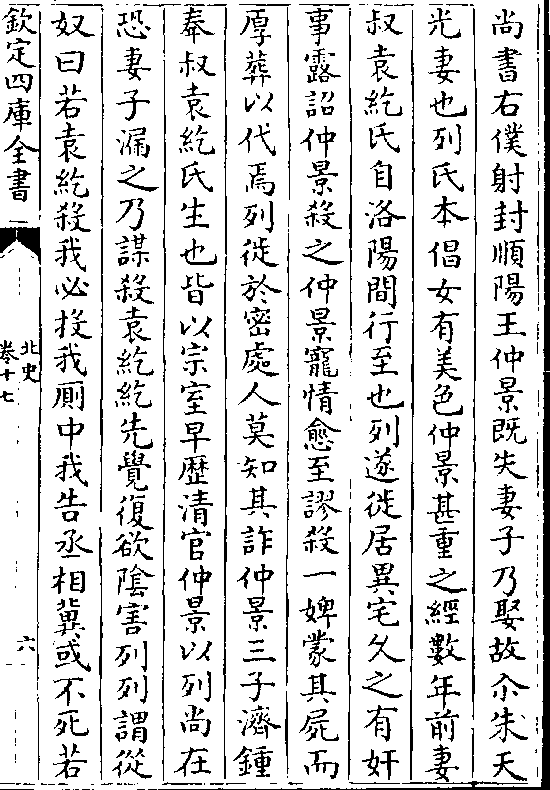 尚書右僕射封順陽王仲景既失妻子乃娶故尒朱天
光妻也列氏本倡女有美色仲景甚重之經數年前妻
叔袁紇氏自洛陽間行至也列遂徙居異宅久之有奸
事露詔仲景殺之仲景寵情愈至謬殺一婢蒙其屍而
厚葬以代焉列徙於密處人莫知其詐仲景三子濟鍾
奉叔袁紇氏生也皆以宗室早歷清官仲景以列尚在
恐妻子漏之乃謀殺袁紇紇先覺復欲隂害列列謂從
奴曰若袁紇殺我必投我厠中我告丞相冀或不死若
欽定四庫全書
北史
卷十七
六